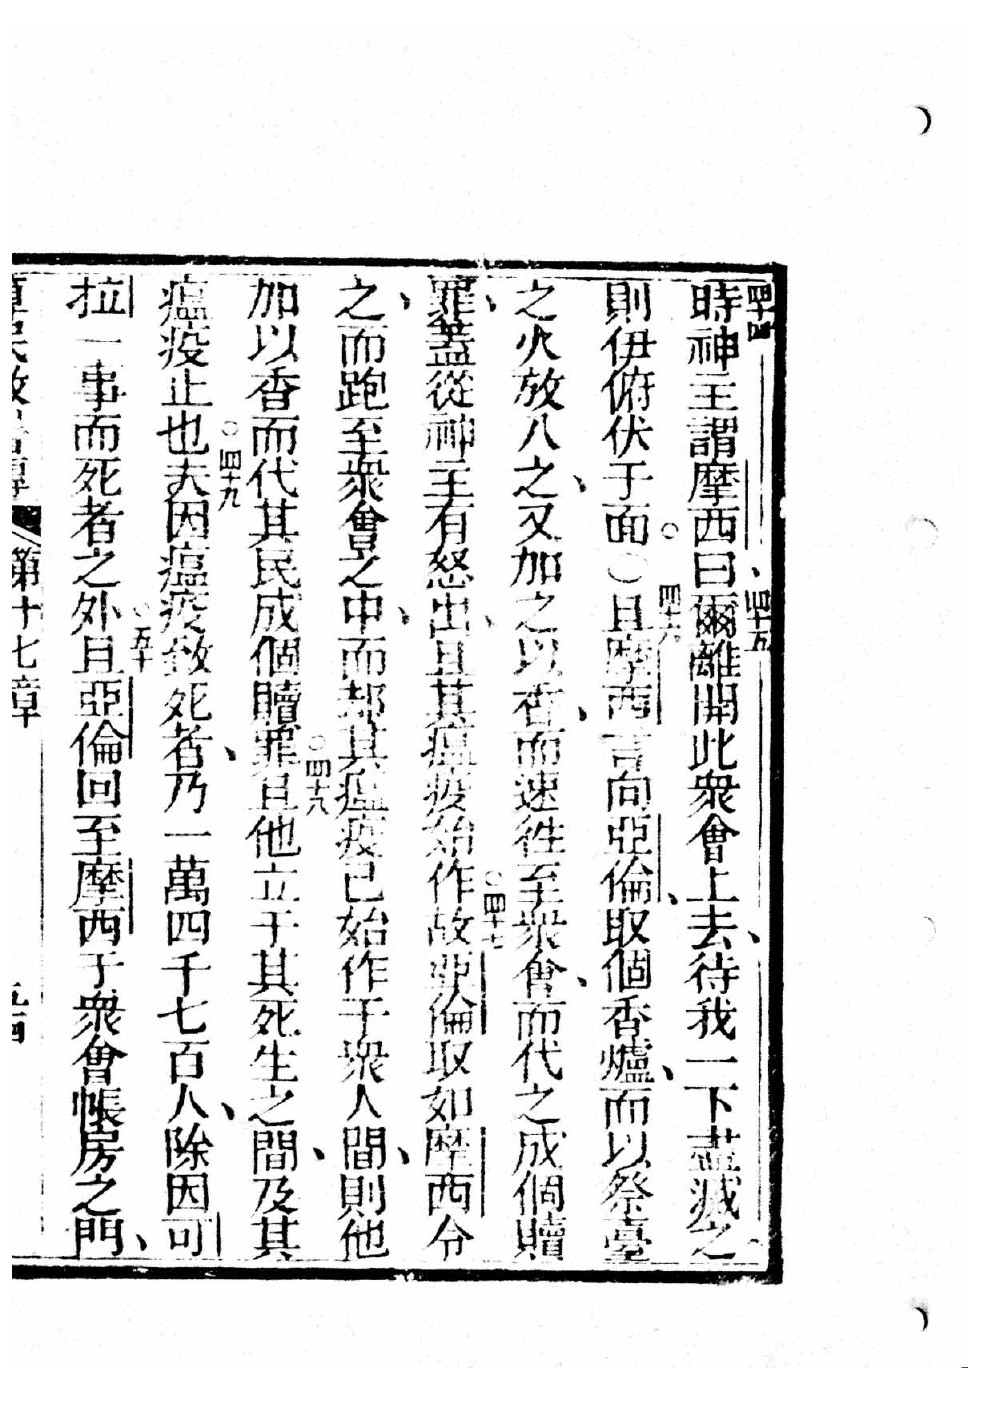 四十四時神主謂摩西曰、四十五爾離開此衆會上去、待我一下盡滅之、
則伊俯伏于面。四十六且摩西言向亞倫、取個香爐、而以祭臺
之火放入之、又加之以香、而速徃至衆會、而代之成個贖
罪、蓋從神主有怒出、且其瘟疫始作。四十七故亞倫取如摩西令
之、而跑至衆會之中、而却其瘟疫已始作于衆人間、則他
加以香而代其民成個贖罪。四十八且他立于其死生之間、及其
瘟疫止也。四十九夫因瘟疫致死者、乃一萬四千七百人、除因可
拉一事而死者之外。五十且亞倫回至摩西于衆會帳房之門、
第十七章